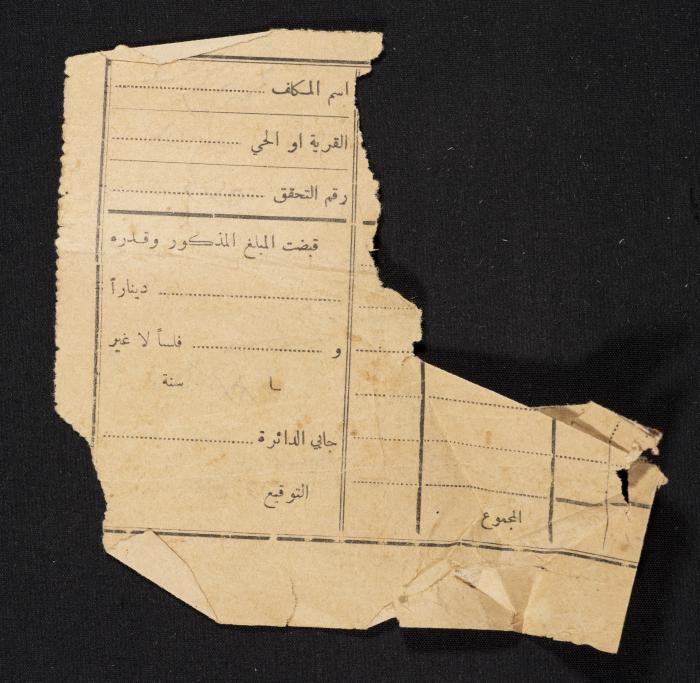 اسم المكلف
القرية او الحي
رقم التحقق
قبضت المبلغ المذكور وقدره
ديناراً
و فلساً لا غير
سنة
جابي الدائرة
التوقيع
المجموع